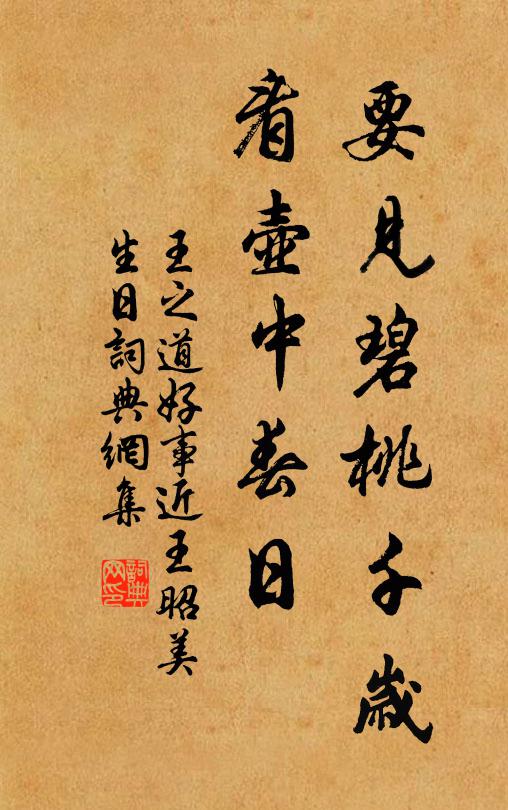 要見碧桃千歲
看壺中春日
王之道好事近王昭美
生日詞典網集
詞典
网印